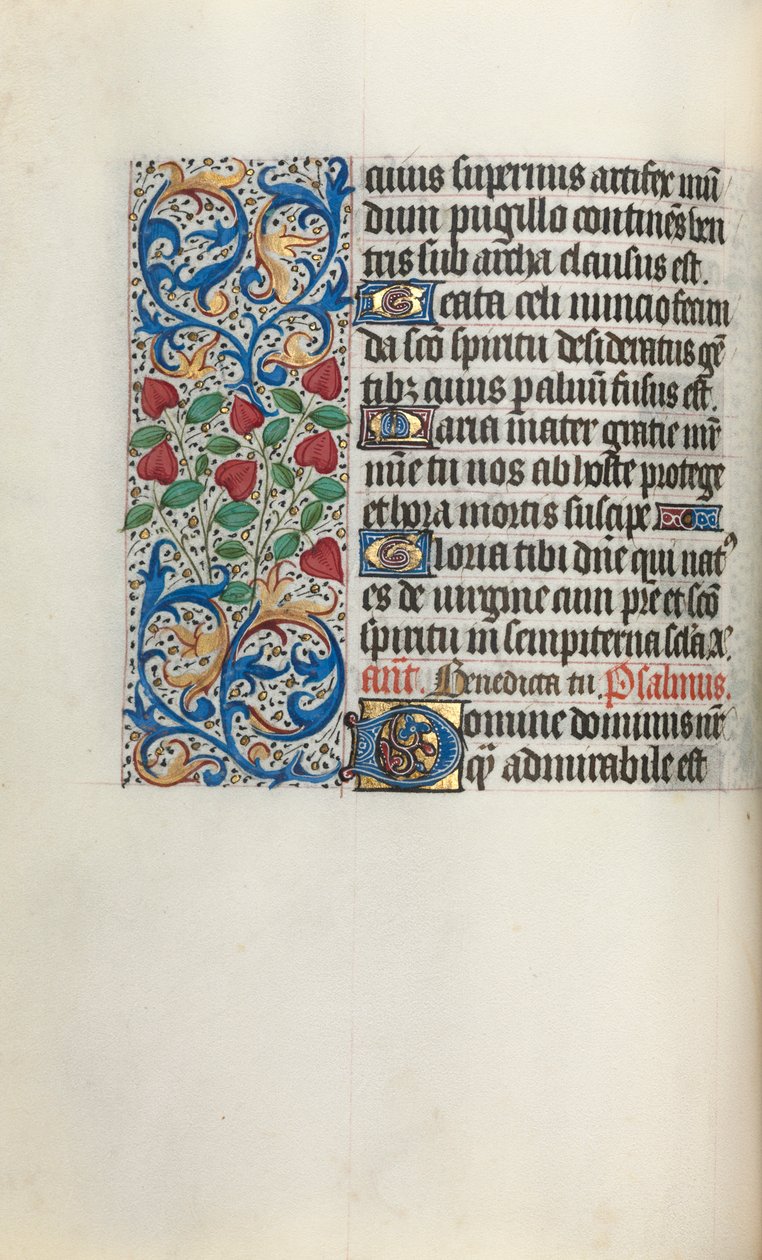 cuius supernus artifex mū
dum pugillo continēs ven
tris sub archa clausus est.
Beata celi nuncio fecun
da sc̄o spiritu desideratus gē
tibꝫ cuius p aluū fusus est.
Maria mater gratie mr̄
mīe tu nos ab hoste protege
et hora mortis suscipe
Gloria tibi dn̄e qui natꝰ
es de virgine cum pr̄e et sc̄o
spiritu in sempiterna sc̄la A.
an̄t. Benedicta tu. Psalmus.
Domine dominus nr̄
qͣ admirabile est